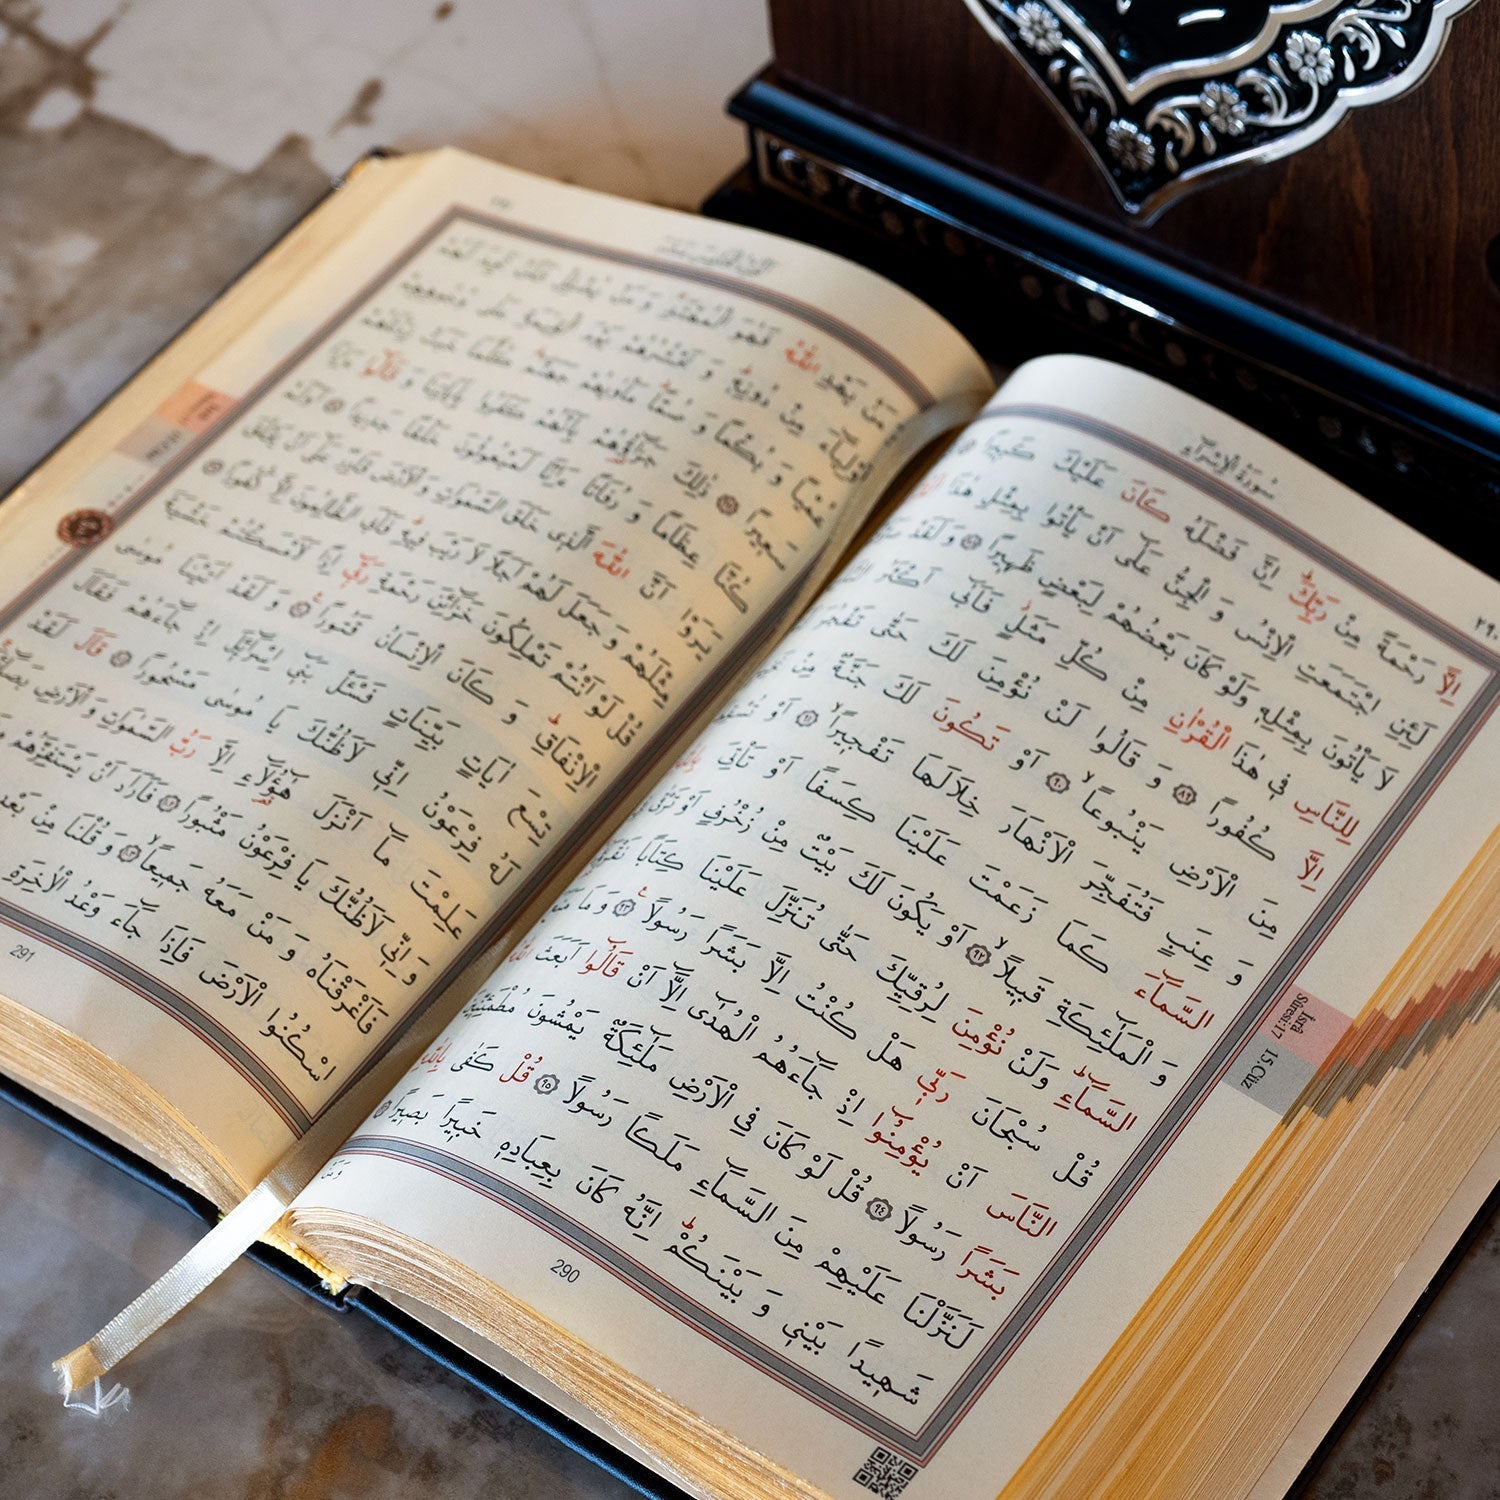 سُورَةُ الْاِسْرَاءِ
٢٩٠
اِلَّا رَحْمَةً مِنْ رَبِّكَ اِنَّ فَضْلَهُ كَانَ عَلَيْكَ كَبٖيرًا
لَئِنِ اجْتَمَعَتِ الْاِنْسُ وَ الْجِنُّ عَلٰٓى اَنْ يَأْتُوا بِمِثْلِ هٰذَا
لَا يَأْتُونَ بِمِثْلِهٖ وَلَوْ كَانَ بَعْضُهُمْ لِبَعْضٍ ظَهٖيرًا ٨٨ وَ لَقَدْ
لِلنَّاسِ فٖي هٰذَا الْقُرْاٰنِ مِنْ كُلِّ مَثَلٍ فَاَبٰٓى اَكْثَرُ
اِلَّا كُفُورًا ٨٩ وَ قَالُوا لَنْ نُؤْمِنَ لَكَ حَتّٰى تَفْجُرَ
مِنَ الْاَرْضِ يَنْبُوعًا ٩٠ اَوْ تَكُونَ لَكَ جَنَّةٌ مِنْ
وَ عِنَبٍ فَتُفَجِّرَ الْاَنْهَارَ خِلَالَهَا تَفْجٖيرًا ٩١ اَوْ
السَّمَٓاءَ كَمَا زَعَمْتَ عَلَيْنَا كِسَفًا اَوْ تَأْتِيَ
وَ الْمَلٰٓئِكَةِ قَبٖيلًا ٩٢ اَوْ يَكُونَ لَكَ بَيْتٌ مِنْ زُخْرُفٍ اَوْ
السَّمَٓاءِ وَلَنْ نُؤْمِنَ لِرُقِيِّكَ حَتّٰى تُنَزِّلَ عَلَيْنَا كِتَابًا
قُلْ سُبْحَانَ رَبّٖي هَلْ كُنْتُ اِلَّا بَشَرًا رَسُولًا ٩٣ وَ مَا
النَّاسَ اَنْ يُؤْمِنُٓوا اِذْ جَٓاءَهُمُ الْهُدٰٓى اِلَّٓا اَنْ قَالُٓوا اَبَعَثَ اللّٰهُ
بَشَرًا رَسُولًا ٩٤ قُلْ لَوْ كَانَ فِي الْاَرْضِ مَلٰٓئِكَةٌ يَمْشُونَ مُطْمَئِنّٖينَ
لَنَزَّلْنَا عَلَيْهِمْ مِنَ السَّمَٓاءِ مَلَكًا رَسُولًا ٩٥ قُلْ كَفٰى بِاللّٰهِ
شَهٖيدًا بَيْنٖي وَ بَيْنَكُمْ اِنَّهُ كَانَ بِعِبَادِهٖ خَبٖيرًا بَصٖيرًا
İsrâ
Sûresi:17
15.Cüz
290
وَ مَنْ يَهْدِ اللّٰهُ فَهُوَ الْمُهْتَدِ وَ مَنْ يُضْلِلْ فَلَنْ تَجِدَ لَهُمْ
اَوْلِيَٓاءَ مِنْ دُونِهٖ وَ نَحْشُرُهُمْ يَوْمَ الْقِيٰمَةِ عَلٰى وُجُوهِهِمْ
عُمْيًا وَ بُكْمًا وَ صُمًّا مَأْوٰيهُمْ جَهَنَّمُ كُلَّمَا خَبَتْ زِدْنَاهُمْ
سَعٖيرًا ٩٧ ذٰلِكَ جَزَٓاؤُهُمْ بِاَنَّهُمْ كَفَرُوا بِاٰيَاتِنَا وَ قَالُٓوا ءَاِذَا
كُنَّا عِظَامًا وَ رُفَاتًا ءَاِنَّا لَمَبْعُوثُونَ خَلْقًا جَدٖيدًا ٩٨ اَوَلَمْ
يَرَوْا اَنَّ اللّٰهَ الَّذٖي خَلَقَ السَّمٰوَاتِ وَ الْاَرْضَ قَادِرٌ عَلٰٓى اَنْ يَخْلُقَ
مِثْلَهُمْ وَ جَعَلَ لَهُمْ اَجَلًا لَا رَيْبَ فٖيهِ فَاَبَى الظَّالِمُونَ اِلَّا كُفُورًا ٩٩
قُلْ لَوْ اَنْتُمْ تَمْلِكُونَ خَزَٓائِنَ رَحْمَةِ رَبّٖٓي اِذًا لَاَمْسَكْتُمْ خَشْيَةَ
الْاِنْفَاقِ وَ كَانَ الْاِنْسَانُ قَتُورًا ١٠٠ وَ لَقَدْ اٰتَيْنَا مُوسٰى
تِسْعَ اٰيَاتٍ بَيِّنَاتٍ فَسْئَلْ بَنٖٓي اِسْرَٓائٖلَ اِذْ جَٓاءَهُمْ فَقَالَ
لَهُ فِرْعَوْنُ اِنّٖي لَاَظُنُّكَ يَا مُوسٰى مَسْحُورًا ١٠١ قَالَ لَقَدْ
عَلِمْتَ مَٓا اَنْزَلَ هٰٓؤُلَٓاءِ اِلَّا رَبُّ السَّمٰوَاتِ وَ الْاَرْضِ بَصَٓائِرَ
وَ اِنّٖي لَاَظُنُّكَ يَا فِرْعَوْنُ مَثْبُورًا ١٠٢ فَاَرَادَ اَنْ يَسْتَفِزَّهُمْ
فَاَغْرَقْنَاهُ وَ مَنْ مَعَهُ جَمٖيعًا ١٠٣ وَ قُلْنَا مِنْ بَعْدِ
اسْكُنُوا الْاَرْضَ فَاِذَا جَٓاءَ وَعْدُ الْاٰخِرَةِ
291